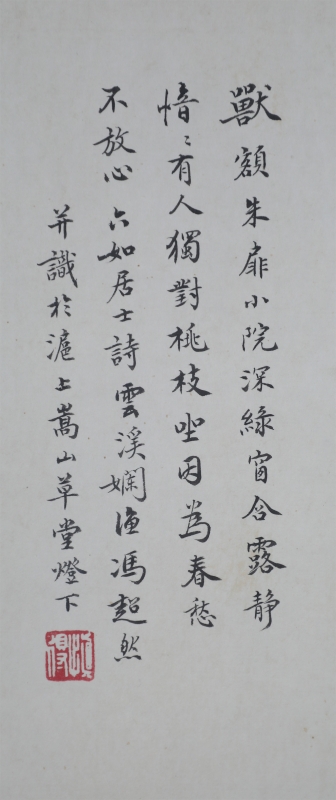 獸額朱扉小院深綠窗含露靜
愔〻有人獨對桃枝坐因為春愁
不放心六如居士詩雲溪嬾漁馮超然
并識於滬上嵩山草堂燈下